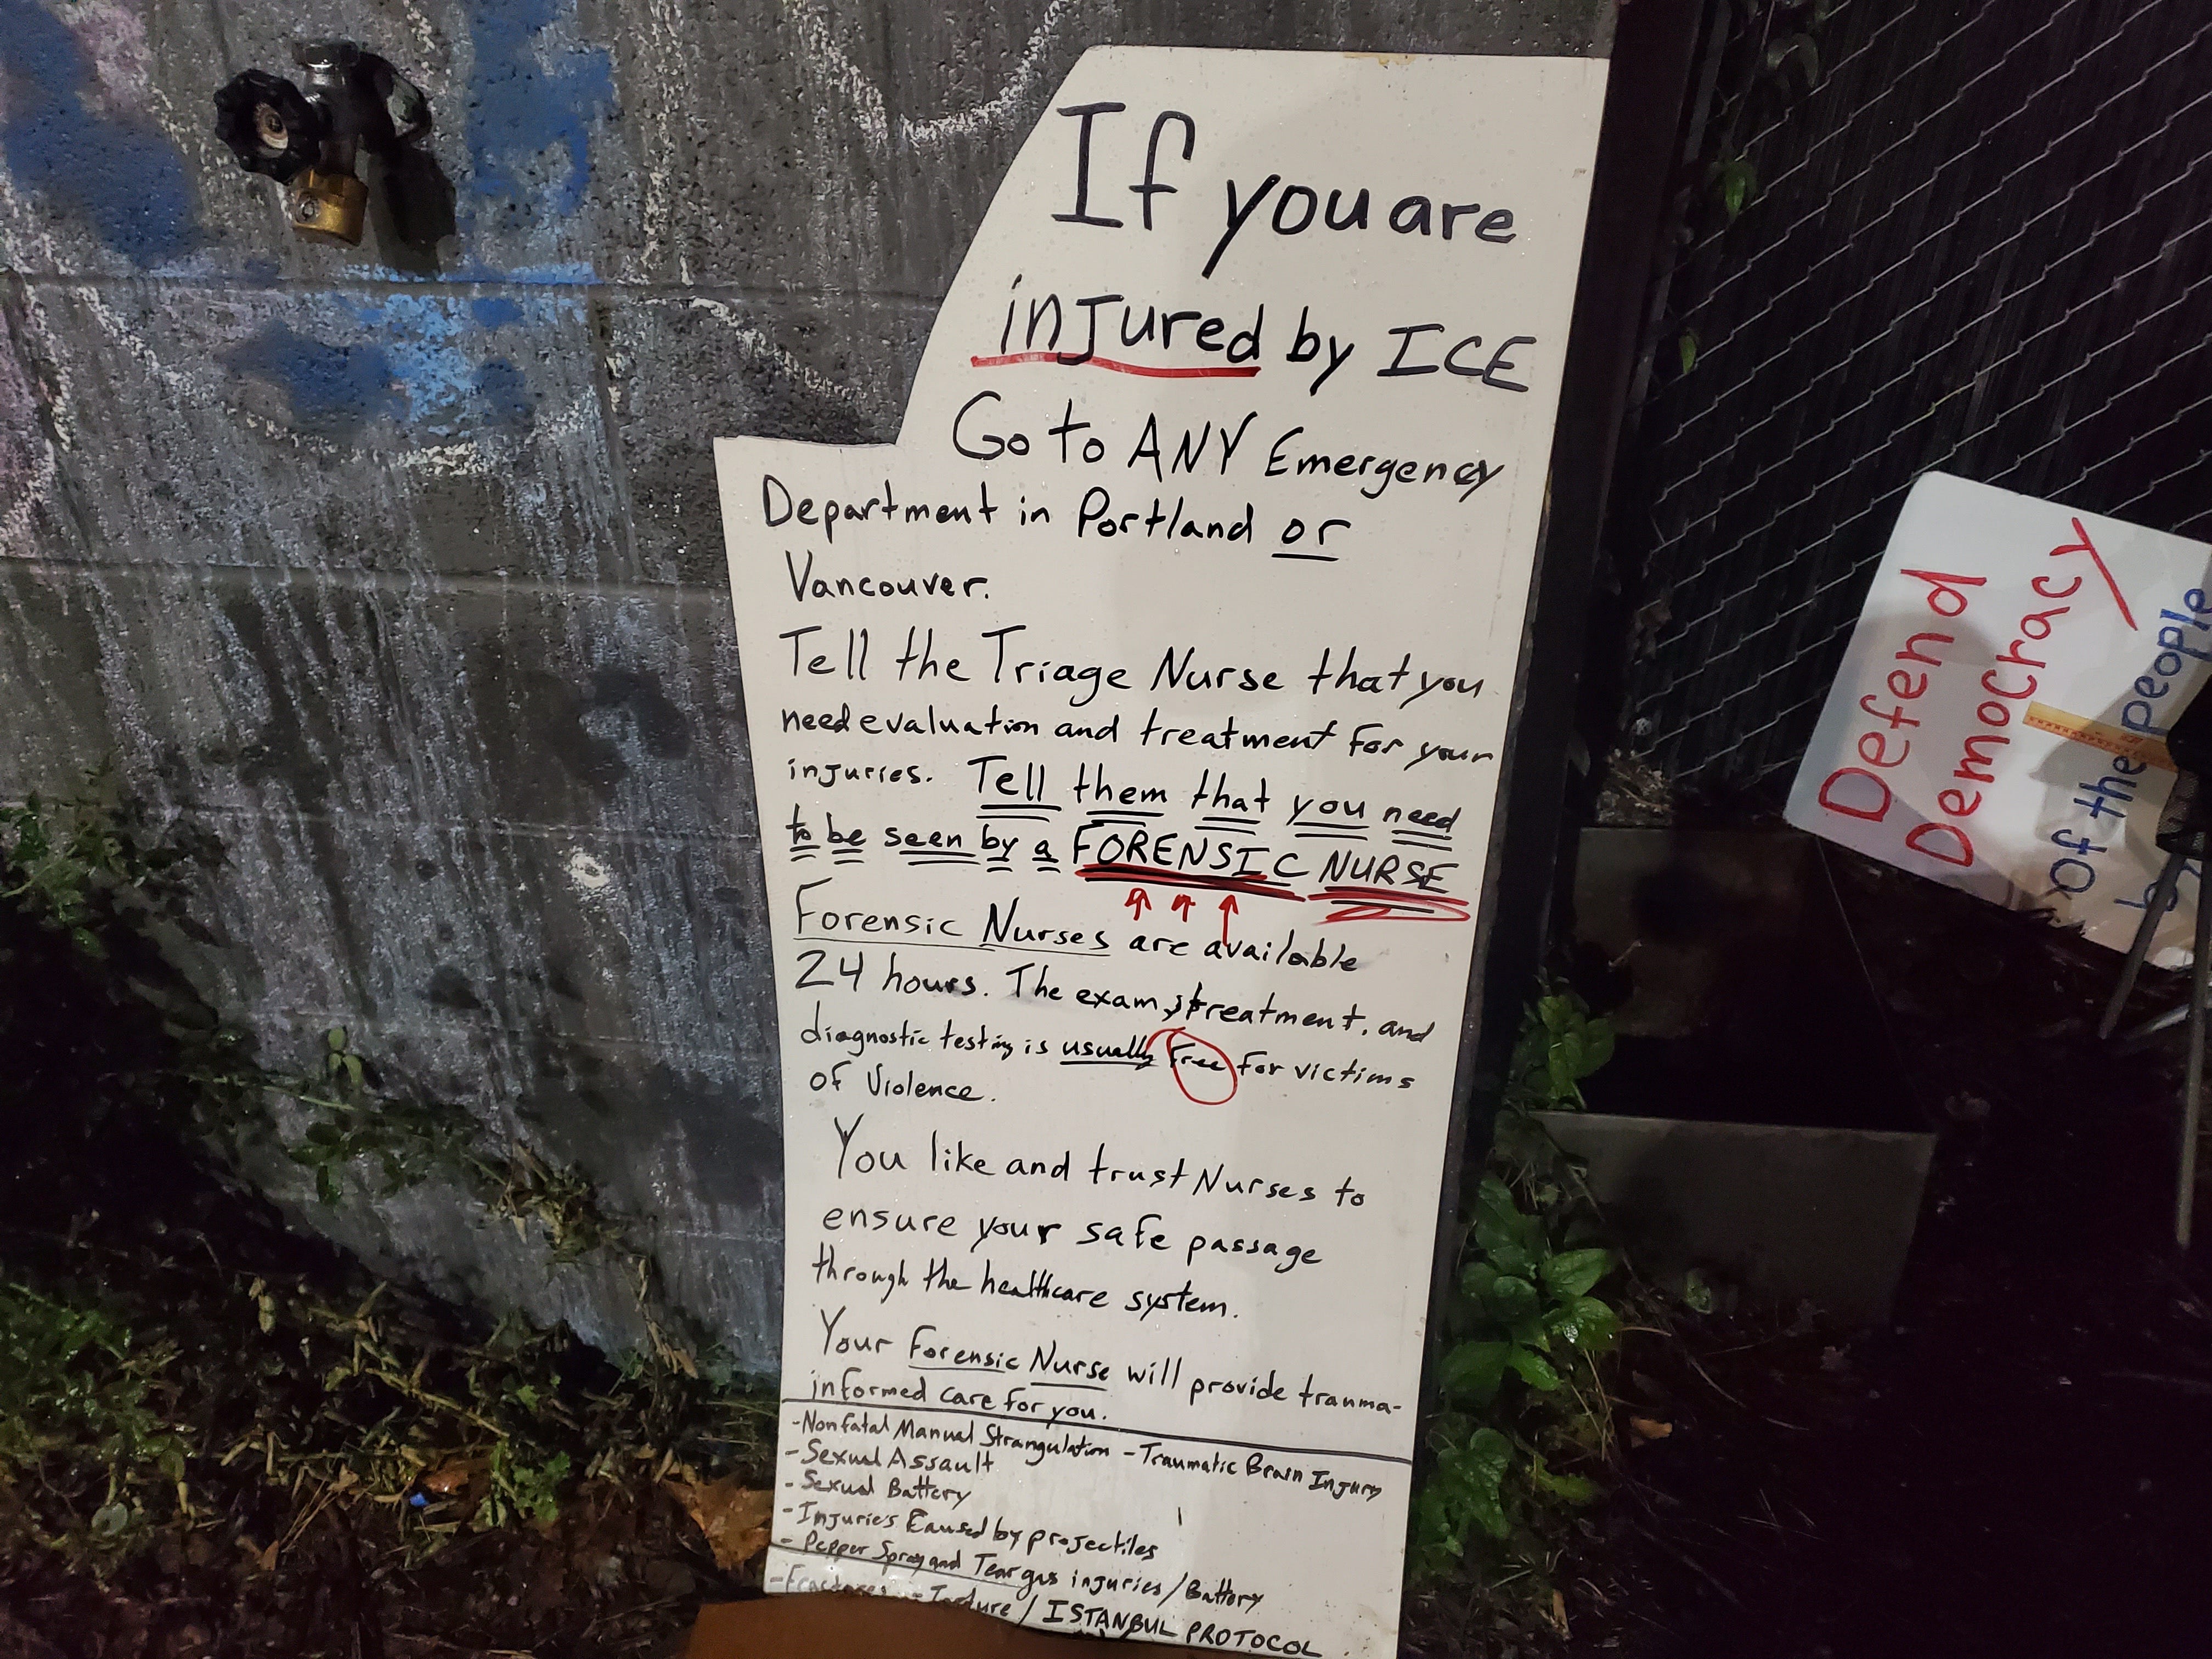 If you are
injured by ICE
Go to ANY Emergency
Department in Portland or
Vancouver.
Tell the Triage Nurse that you
need evaluation and treatment for your
injuries. Tell them that you need
to be seen by a FORENSIC NURSE
Forensic Nurses are available
24 hours. The exam, treatment, and
diagnostic testing is usually free for victims
of Violence.
You like and trust Nurses to
ensure your safe passage
through the healthcare system.
Your Forensic Nurse will provide trauma-
informed care for you.
-Nonfatal Manual Strangulation -Traumatic Brain Injury
-Sexual Assault
-Sexual Battery
-Injuries Caused by projectiles
-Pepper Spray and Tear gas injuries/Battery
-Fractures -Torture/ISTANBUL PROTOCOL
Defend
Democracy
of the people
by